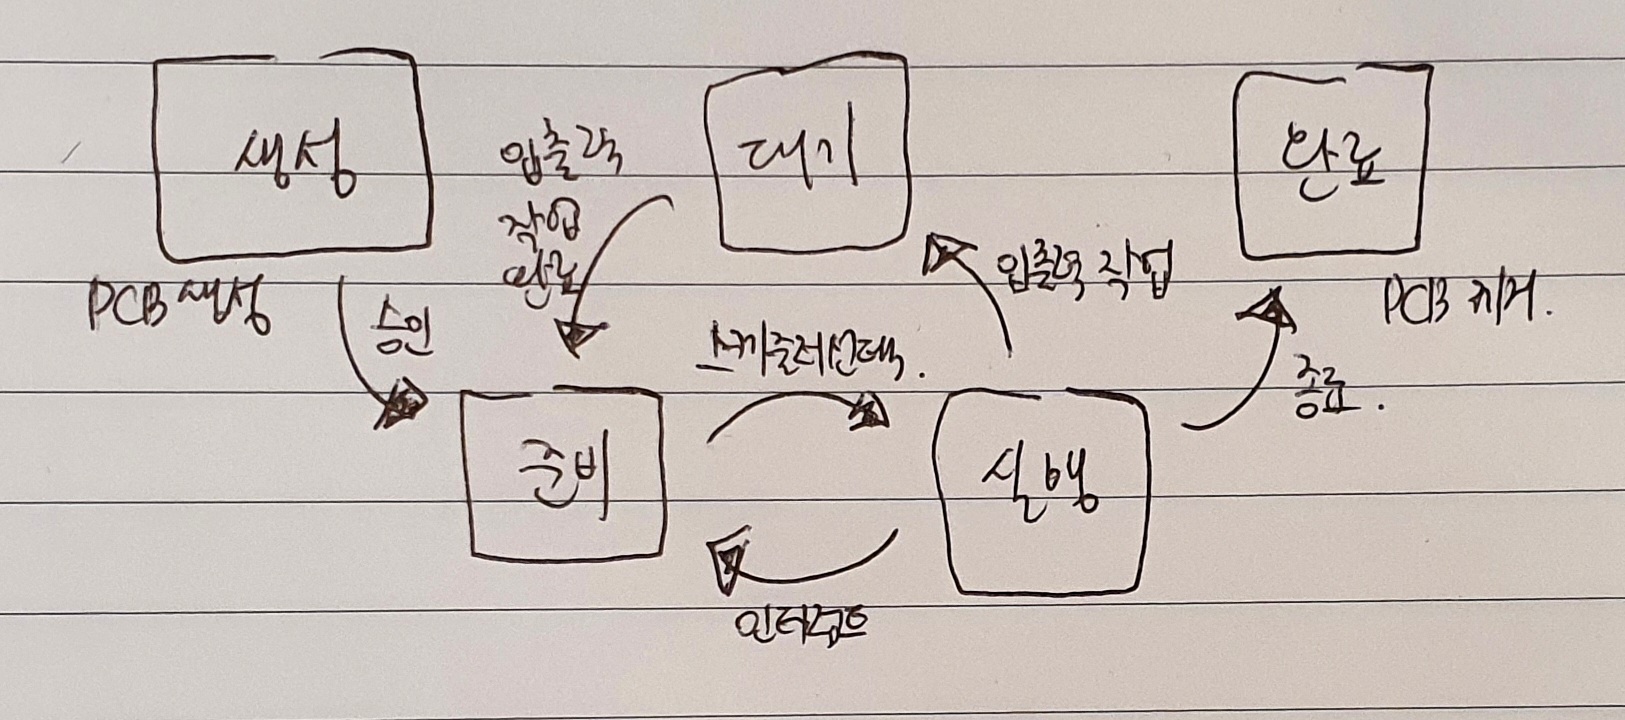 생성
대기
완료
입출력
작업
완료
PCB 생성
승인
입출력 작업
PCB 제거.
스케줄러선택.
종료.
준비
실행
인터럽트